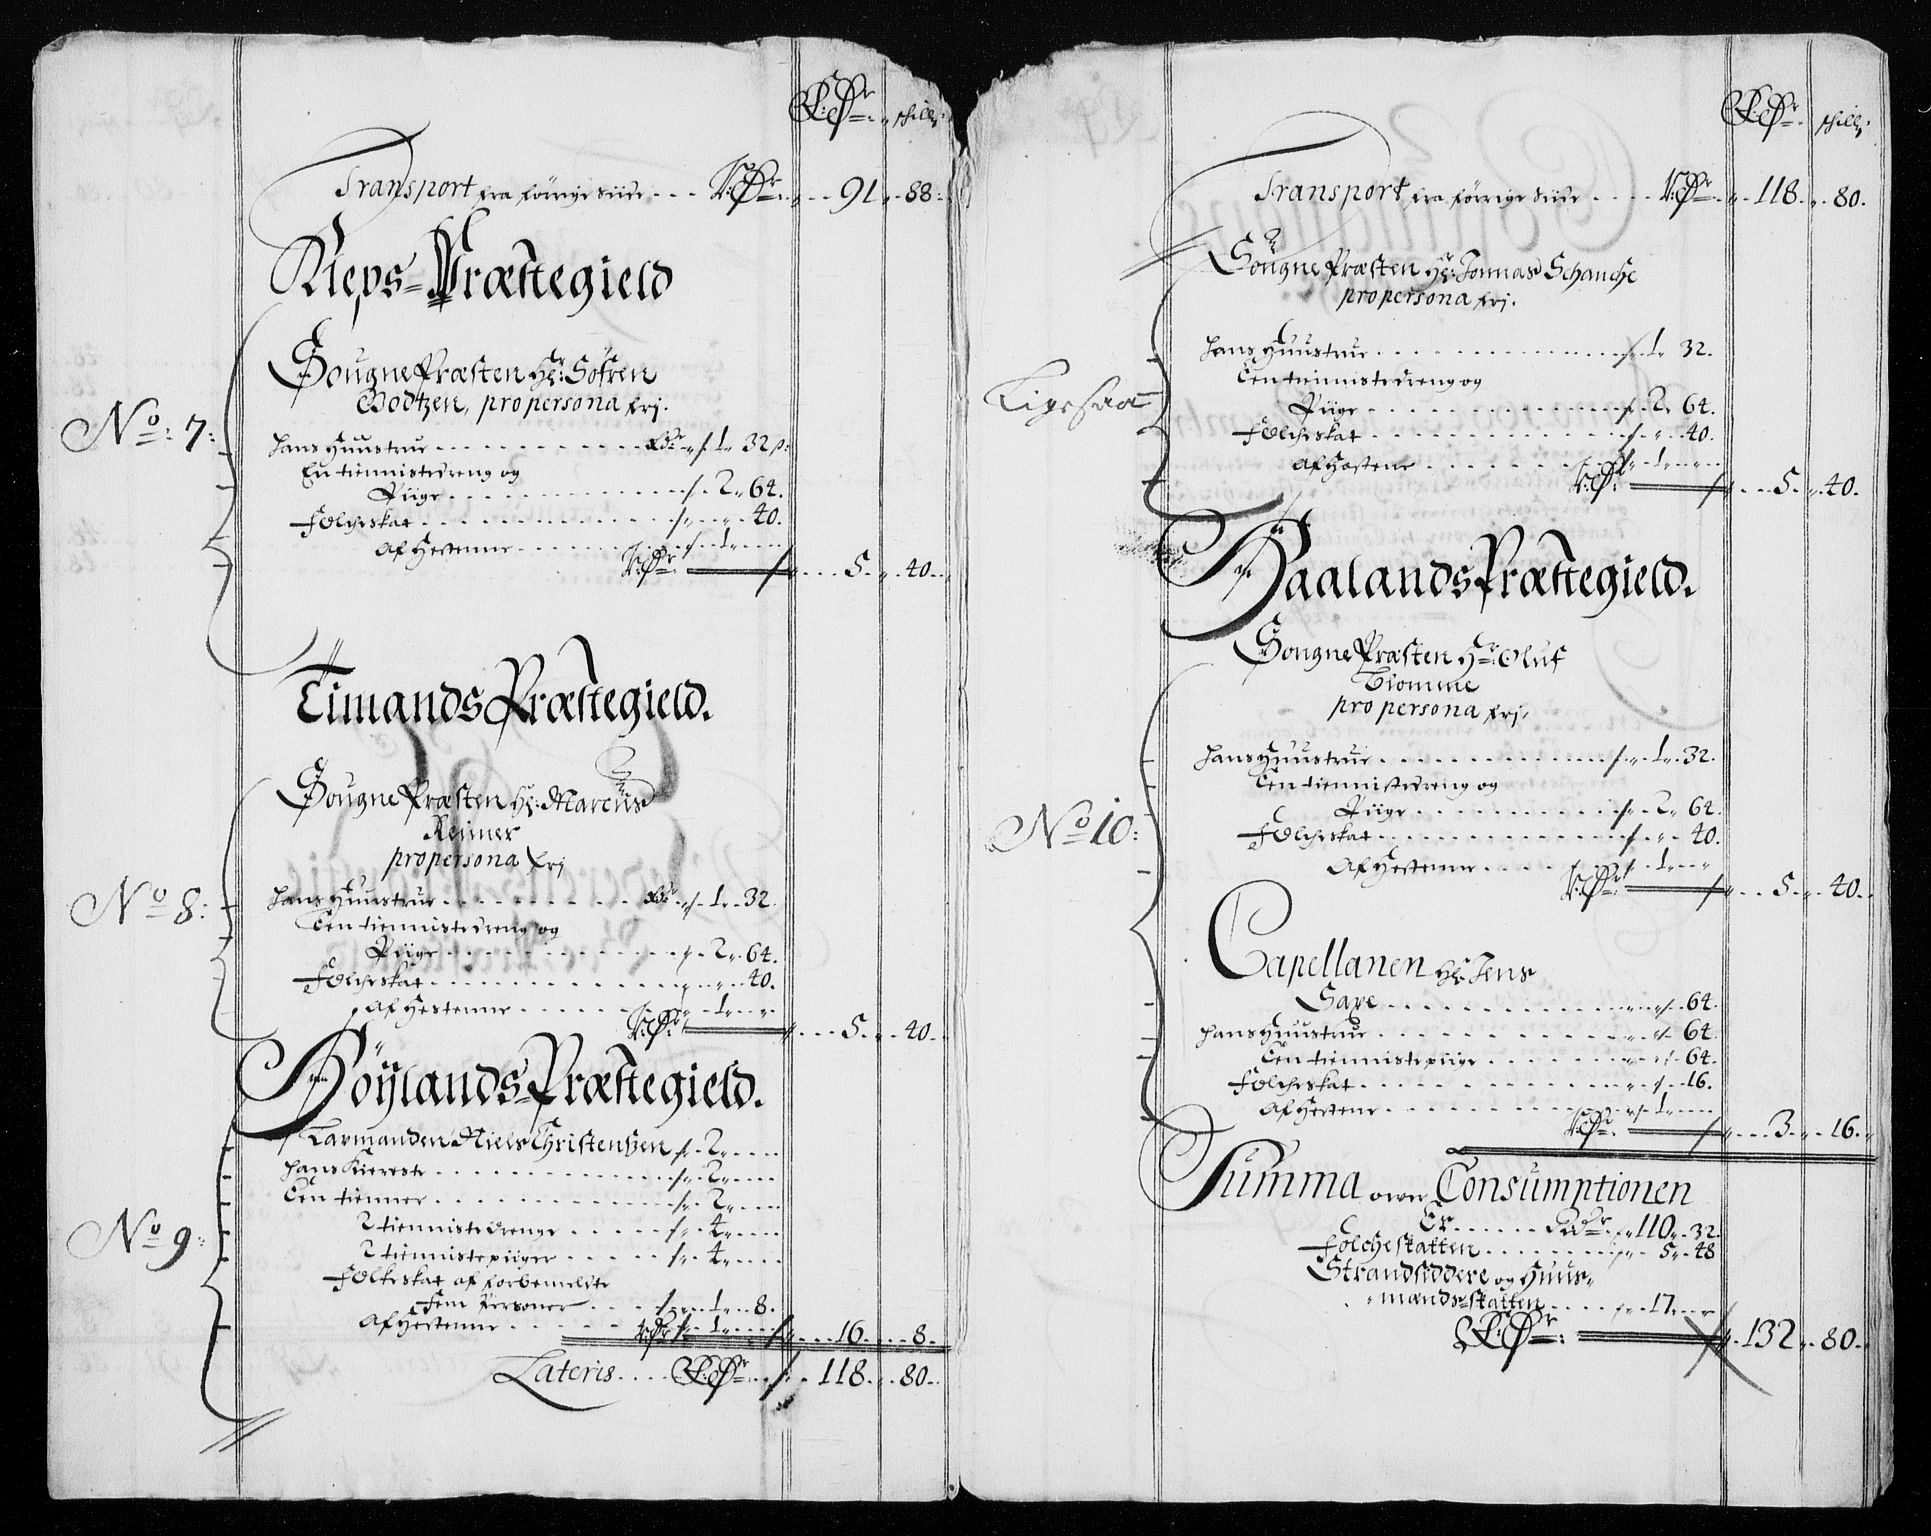 Rdr. schill:
Transport fra förrige Siide . . . Rdr. . . 91 . . 88:
Kleps-Præstegield
No: 7:
Sougne Præsten Hr: Söfren
Godtzen, pro persona fri.
Hans Huustrue . . . Rdr. 1. 32 s:
En tiennistedreng og
Piige . . . 2. 64.
Folcheskat . . . 40.
Af Hestenne . . . 1
Rdr. 5. 40.
Timands Præstegield.
Sougne Præsten Hr: Marcus
Reimer
pro persona fri
No 8:
Hans Huustrue . . . Rdr. 1. 32.
Een tiennistedreng og
Piige . . . 2. 64.
Folcheskat . . . 40.
Af Hestenne . . . 1
Rdr. 5. 40.
Höylands Præstegield.
Laxmanden Niels Christenßen . 2
Hans Kiereste . . . 2
Een tienner . . . 2
No 9:
2 tiennistedrenge . . . 4
2 tiennistepiiger . . . 4
Folkeskat af forbemelite
fem Personer . . . 1. 8.
Af Hestenne . . . 1
Rdr. 16. 8.
Lateris . . . Rdr. 118. 80.
Rdr. schill:
Transport fra förrige Siide . . . Rdr. 118. 80.
Sougne Præsten Hr: Jonnas Schanche
pro persona fri.
Hans Huustrue . . . 1. 32.
Een tiennistedreng og
Piige . . . 2. 64.
Folcheskat . . . 40.
Af Hæstene . . . 1
Rdr. 5. 40.
Haalands Præstegield.
Sougne Præsten Hr: Oluf
Blomme
pro persona fri,
Hans Huustrue . . . 1. 32.
Een tiennistedreng og
No 10:
Piige . . . 2. 64.
Folcheskat . . . 40.
Af Hestenne . . . 1
Rdr. 5. 40.
Capellanen Hr: Jens
Saxe . . . 64.
Hans Huustrue . . . 64.
Een tiennistepiige . . . 64.
Folcheskat . . . 16.
Af Hestene . . . 1
Rdr. 3. 16.
Summa ower Consumptionen
Er . . . Rdr. 110. 32.
Folcheskatten . . . 5. 48
Strandsiddere og Huus-
mands-skatten . . . 17
Rdr. 132. 80.